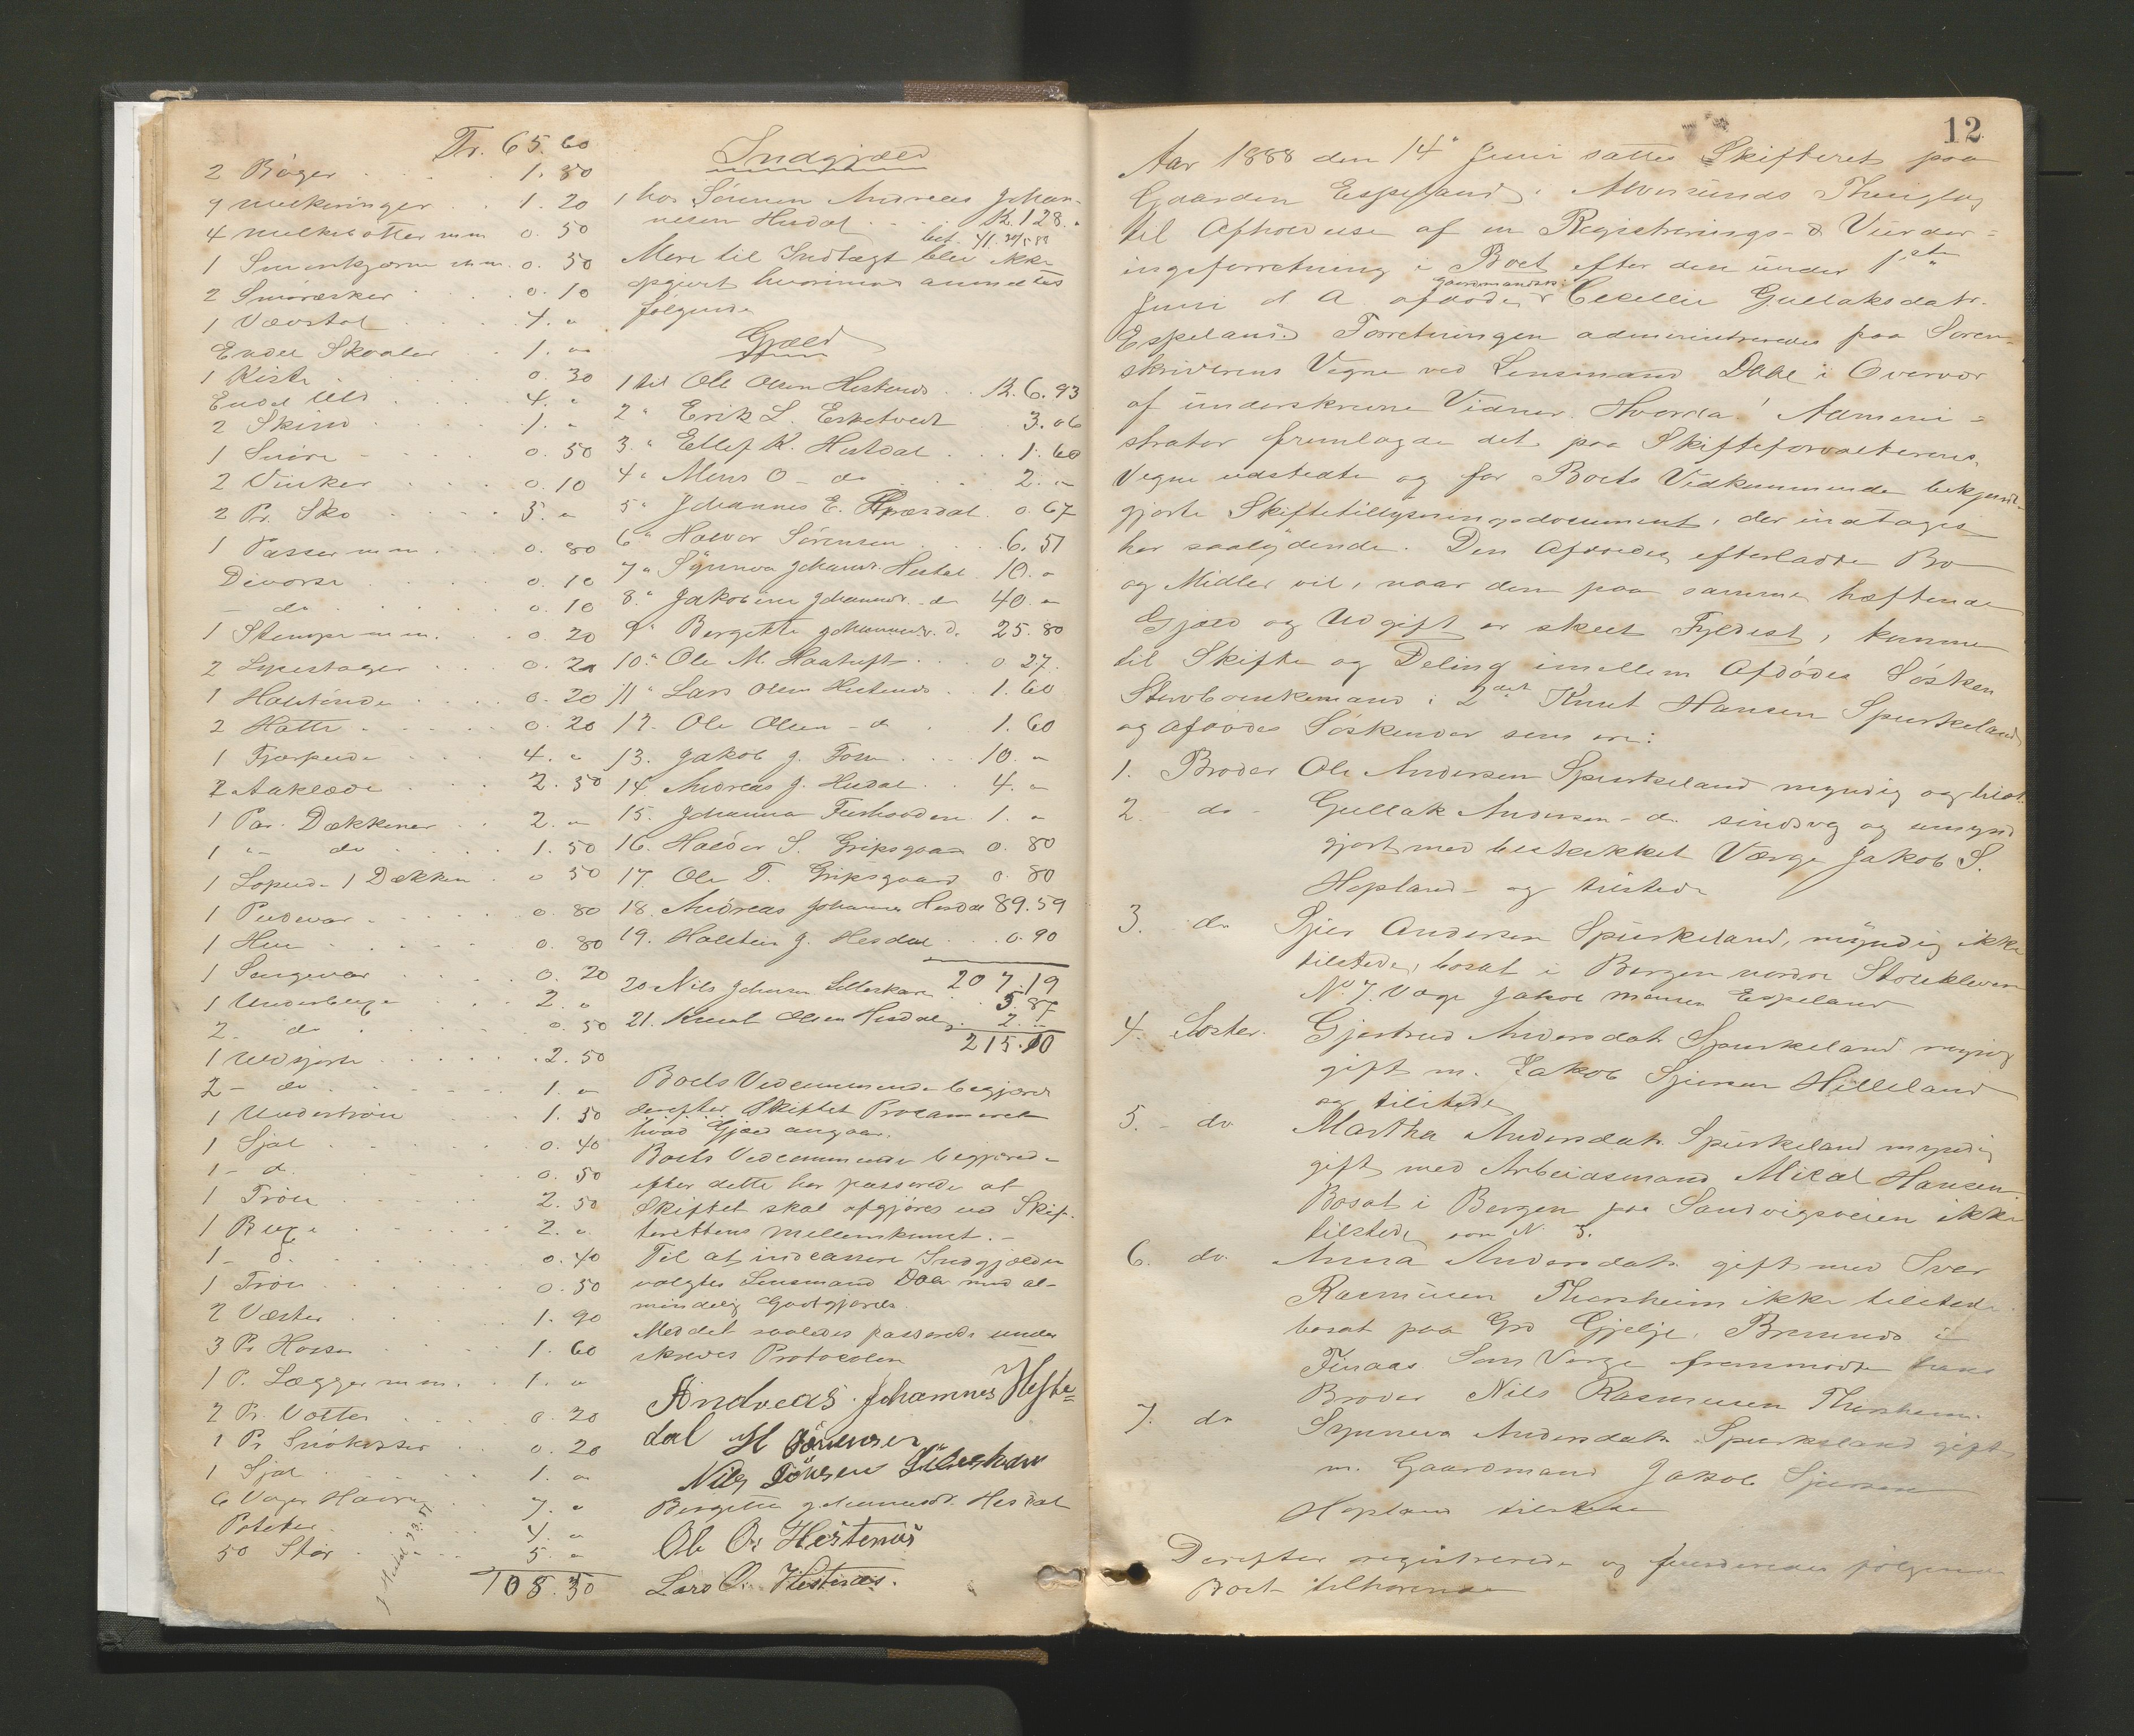 Tr. 65.60
2 Bøger 1.80
9 melkeringer 1.20
4 melkebøtter m m 0.50
1 Smørkjærne m m. 0.50
2 Smøræsker 0.10
1 Vævstol 4. "
Endel Skaaler 1. "
1 Kiste 0.30
Endel Uld 4. "
2 Skind 1. "
1 Snøre 0.50
2 Vinker 0.10
2 Pr. Sko 3. "
1 Passer m m. 0.80
Diverse 0.10
- do 0.10
1 Stampe m m. 0.20
2 Lysestager 0.20
1 Halvtønde 0.20
2 Hatte 0.20
1 Fjærpude 4. "
2 Aaklæde 2.50
1 Par. Dækkener 2. "
1 " do 1.50
1 Lopude 1 Dækken 0 50
1 Pudevar 0.80
1 Hue 0.80
1 Sengevar 0.20
1 Underbuxe 2. "
2 - do 0.50
1 Uldskjorte 2.50
2 - do 1. "
1 Undertrøie 1.50
1 Sjal 0.40
1 - d. 0.50
1 Trøie 2.50
1 Buxe 2. "
1 - d. 0.40
1 Trøie 0.50
2 Væster 1.90
3 Pr Hoser 1.60
1 P. Lægger m m. 1. "
2 Pr. Votter 0.20
1 Pr Snøksser 0.20
1 Sjal 1. "
6 Voger Havre 7. "
Poteter 4. "
50 Stør 5. "
108.30
Indgjæld
1 hos Sørensen Andreas Johan-
nesen Hisdal K. 128. "
Mere til Indtægt blev ikke
opgivet hvorimod anmeldtes
følgende
Gjæld
1 til Ole Olsen Hestenes K. 6.93
2 " Erik L. Esketvedt 3.06
3. " Ellef K. Hisdal 1.60
4 " Mons O - do 2. "
5 " Johannes E. 0.67
6 " Halvor Sørensen 6.51
7 " Synneva Johannesd. Hisdal 10. "
8. " Jakobine Johannesd. - do 40. "
9 " Bergitte Johannesd. d. 25.80
10. " Ole M. Haatuft 0.27.
11 " Lars Olsen Hestenes 1.60
12. Ole Olsen - do 1.60
13. Jakob J. Foss 10. "
14. Andreas J. Hisdal 4. "
15. Johanna 1. "
16. Haldor S. Gripsgaard 0.80
17. Ole T. Gripsgaard 0 80
18. Andreas Johannes Hisdal 89.59
19. Halstein J. Hesdal 0.90
207.19
20 Nils Johnsen Lilleskare 5.87
21. Knut Olsen Hisdal 2. "
215.10
Boets Vedkommende begjærede
derefter Skiftet Proclameret
hvad Gjæld angaar.
Boets Vedkommende begjærede
efter dette her passerede at
Skiftet skal afgjøres ved Skif-
terettens mellemkomst. -
Til at indcassere Indgjælden
valgtes Lensmand Dale mod al-
mindelig Godtgjørelse.
Med det saaledes passerede under
skreves Protocolen
Andreas Johannes Heste=
dal H Sørensen
Nils Jönsen Lileskare
Bergitte Johannesd. Hesdal
Ole O. Hestenes
Lars O. Hestenes.
12
Aar 1888 den 14de Juni sattes Skifteret paa
Gaarden Espeland i Alversunds Thinglag
til Afholdelse af en Registrerings- & Vurder=
ingsforretning i Boet efter den under 1ste
gaardmandsk.
Juni d A afdøde Cecellie Gullaksdatr.
Espeland. Forretningen administreredes paa Soren-
skriverens Vegne ved Lensmand Dahl i Overvær
af underskrevne Vidner. Hvorda! Admini=
strator fremlagde det paa Skifteforvalterens
Vegne udstedte og for Boets Vedkommende bekjendt-
gjorte Skiftetillysningsdocument, der indtages
her saalydende. Den Afdødes efterladte Bo
og Midler vil, naar den paa samme hæftende
Gjæld og Udgift er skeet Fyldest, komme
til Skifte og Deling imellem Afdødes Søsken
Stervboenkemand i 2det Knut Hansen Spurkeland
og afdødes Søskender som ere:
1. Broder Ole Andersen Spurkeland myndig og tilst.
2. - do - Gullak Andersen - do sindsvg og umynd
gjort med beskikket Værge Jakob S.
Hopland - og tilstede
3. do Sjur Andersen Spurkeland, myndig ikke
tilstede, bosat i Bergen nordre Stølekleven
No 7. Værge Jakob Monsen Espeland
4. Søster. Gjertrud Andersdatr. Spurkeland myndig
gift m. Jakob Sjursen Hilleland
og tilstede
5. - do Martha Andersdatr. Spurkeland myndig
gift med Arbeidsmand Mikal Hansen
Bosat i Bergen paa Sandvigsveien ikke
tilstede som N. 3.
6. do. Anna Andersdatr. gift med Iver
Rasmusen Thorsheim ikke tilstede
bosat paa Grd Gjelje, Bremnes i
Finaas Som Verge fremmødte hans
Broder Nils Rasmusen Thorsheim.
7. do Synneva Andersdatr. Spurkeland gift
m. Gaardmand Jakob Sjursen
Hopland tilstede
Derefter registreredes og vurderedes følgende
Boet tilhørende